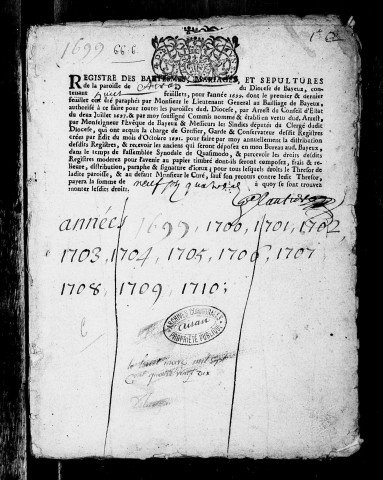 1699 66.6
REGISTRE DES BAPTESMES, MARIAGES, ET SEPULTURES
de la paroisse de du Diocese de Bayeux, con-
tenant feuillets, pour l'année 1699. dont le premier & dernier
feuillet ont été paraphés par Monsieur le Lieutenant General au Bailliage de Bayeux,
authorisé à ce faire pour toutes les paroisses dud. Diocese, par Arrest du Conseil d'Estat
du deux Juillet 1697. & par moy soussigné Commis nommé & établi en vertu dud. Arrest,
par Monseigneur l'Evêque de Bayeux & Messieurs les Sindics deputés du Clergé dudit
Diocese, qui ont acquis la charge de Greffier, Garde & Conservateur desdits Registres
créées par Edit du mois d'Octobre 1691. pour faire par moy annuellement la distribution
desdits Registres, & recevoir les anciens qui seront déposés en mon Bureau aud. Bayeux,
dans le temps de l'assemblée Synodale de Quasimodo, & percevoir les droits desdits
Registres moderés pour l'avenir au papier timbre dont-ils seront composés, frais & re-
lieure, distribution, paraphe & signature d'iceux; pour tous lesquels droits le Thresor de
ladite paroisse, & au defaut Monsieur le Curé, sauf son recours contre ledit Thresor,
payera la somme de à quoy se sont trouvez
monter lesdits droits.
années 1699, 1700, 1701, 1702
1703, 1704, 1705, 1706, 1707
1708, 1709, 1710;
ARCHIVES COMMUNALES
PROPRIÉTÉ PUBLIQUE
mil sept
cent quatre vingt dix